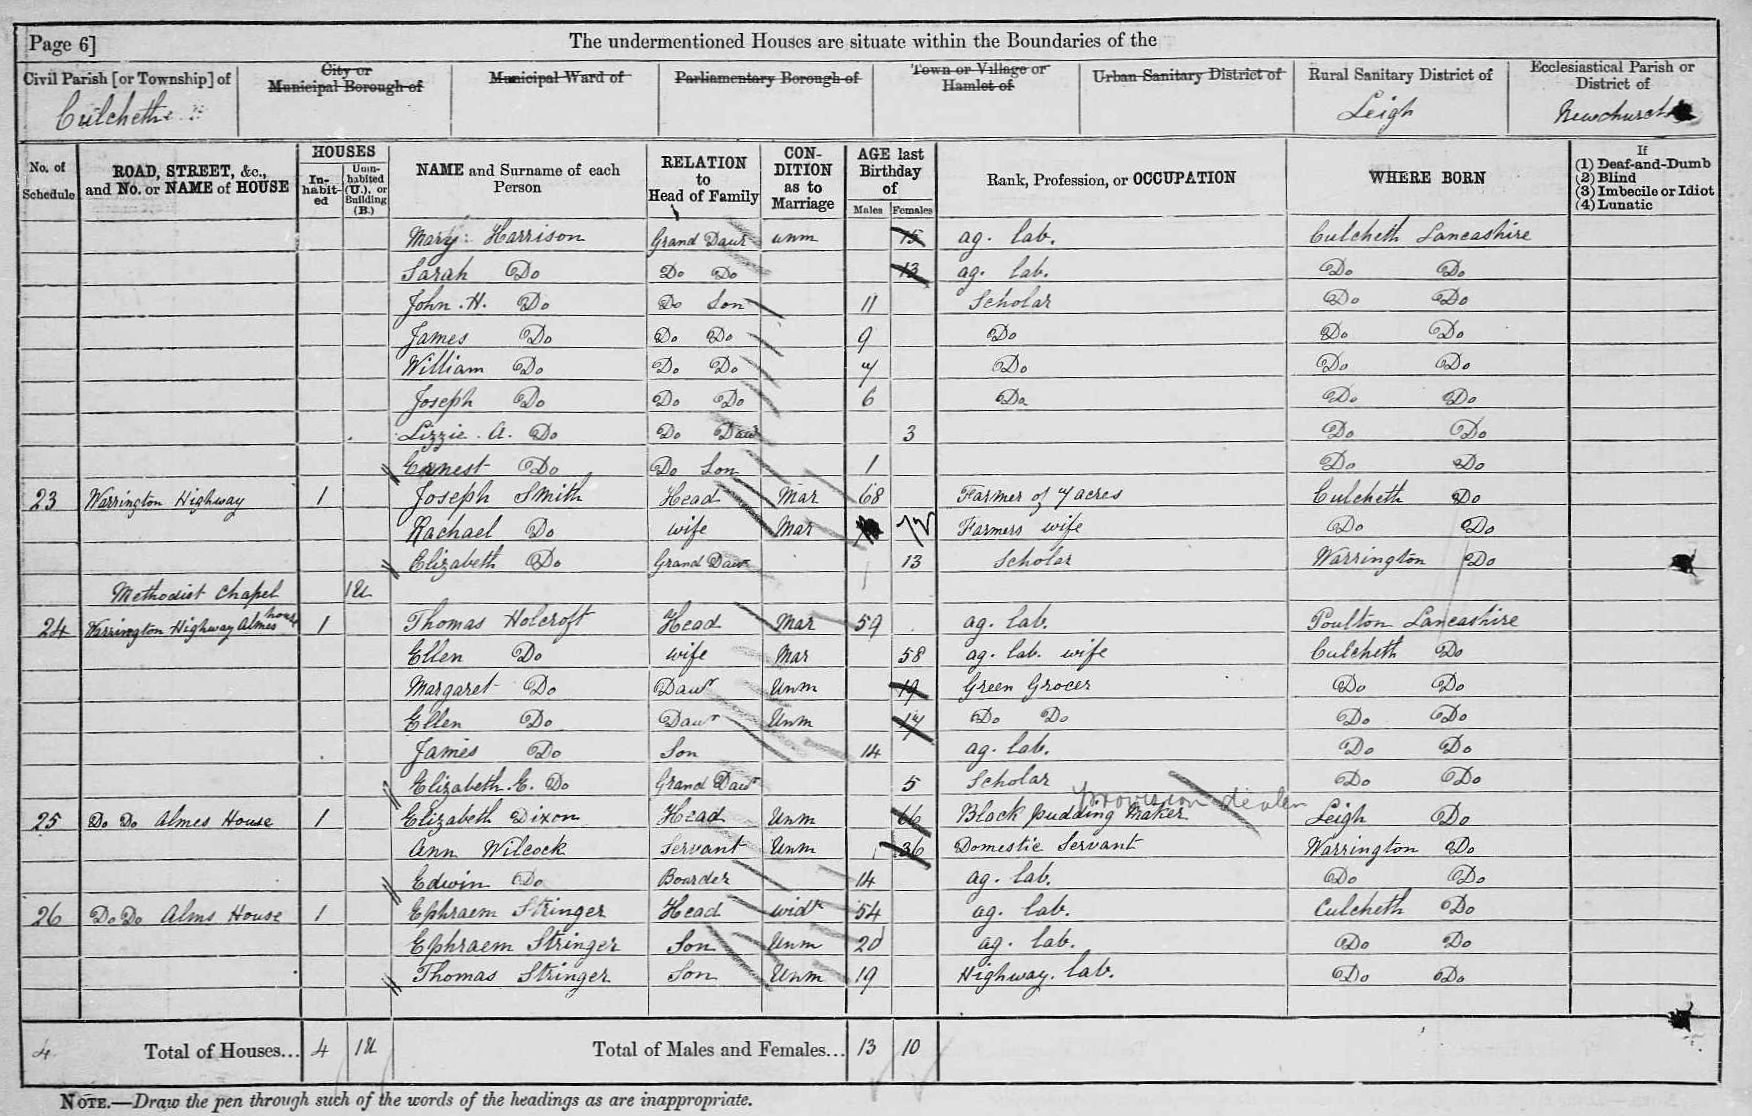 Page 6]
The undermentioned Houses are situate within the Boundaries of the
Civil Parish [or Township] of
Culcheth
City or Municipal Borough of
Municipal Ward of
Parliamentary Borough of
Town or Village or Hamlet of
Urban Sanitary District of
Rural Sanitary District of
Leigh
Ecclesiastical Parish or District of
Newchurch
No. of Schedule
ROAD, STREET, &c., and No. or NAME of HOUSE
HOUSES
In-habit-ed
Unin-habited (U.), or Building (B.)
NAME and Surname of each Person
RELATION to Head of Family
CON-DITION as to Marriage
AGE last Birthday of
Males Females
Rank, Profession, or OCCUPATION
WHERE BORN
If
(1) Deaf-and-Dumb
(2) Blind
(3) Imbecile or Idiot
(4) Lunatic
Mary Harrison Grand Daur unm 15 ag. lab. Culcheth Lancashire
Sarah Do Do Do 13 ag. lab. Do Do
John. H. Do Do Son 11 Scholar Do Do
James Do Do Do 9 Do Do Do
William Do Do Do 7 Do Do Do
Joseph Do Do Do 6 Do Do Do
Lizzie. A. Do Do Daur 3 Do Do
Ernest Do Do Son 1 Do Do
23 Warrington Highway 1 Joseph Smith Head Mar 68 Farmer of 7 acres Culcheth Do
Rachael Do wife Mar 72 Farmers wife Do Do
Elizabeth Do Grand Daur 13 Scholar Warrington Do
Methodist Chapel 1U
24 Warrington Highway Almes house 1 Thomas Holcroft Head Mar 59 ag. lab. Poulton Lancashire
Ellen Do wife Mar 58 ag. lab. wife Culcheth Do
Margaret Do Daur Unm 19 Green Grocer Do Do
Ellen Do Daur Unm 17 Do Do Do Do
James Do Son 14 ag. lab. Do Do
Elizabeth. E. Do Grand Daur 5 Scholar Do Do
provision dealer
25 Do Do Almes House 1 Elizabeth Dixon Head Unm 66 Black pudding Maker Leigh Do
Ann Wilcock Servant Unm 36 Domestic Servant Warrington Do
Edwin Do Boarder 14 ag. lab. Do Do
26 Do Do Alms House 1 Ephraem Stringer Head widr 54 ag. lab. Culcheth Do
Ephraem Stringer Son Unm 20 ag. lab. Do Do
Thomas Stringer Son Unm 19 Highway. lab. Do Do
4 Total of Houses... 4 1U Total of Males and Females... 13 10
NOTE.—Draw the pen through such of the words of the headings as are inappropriate.